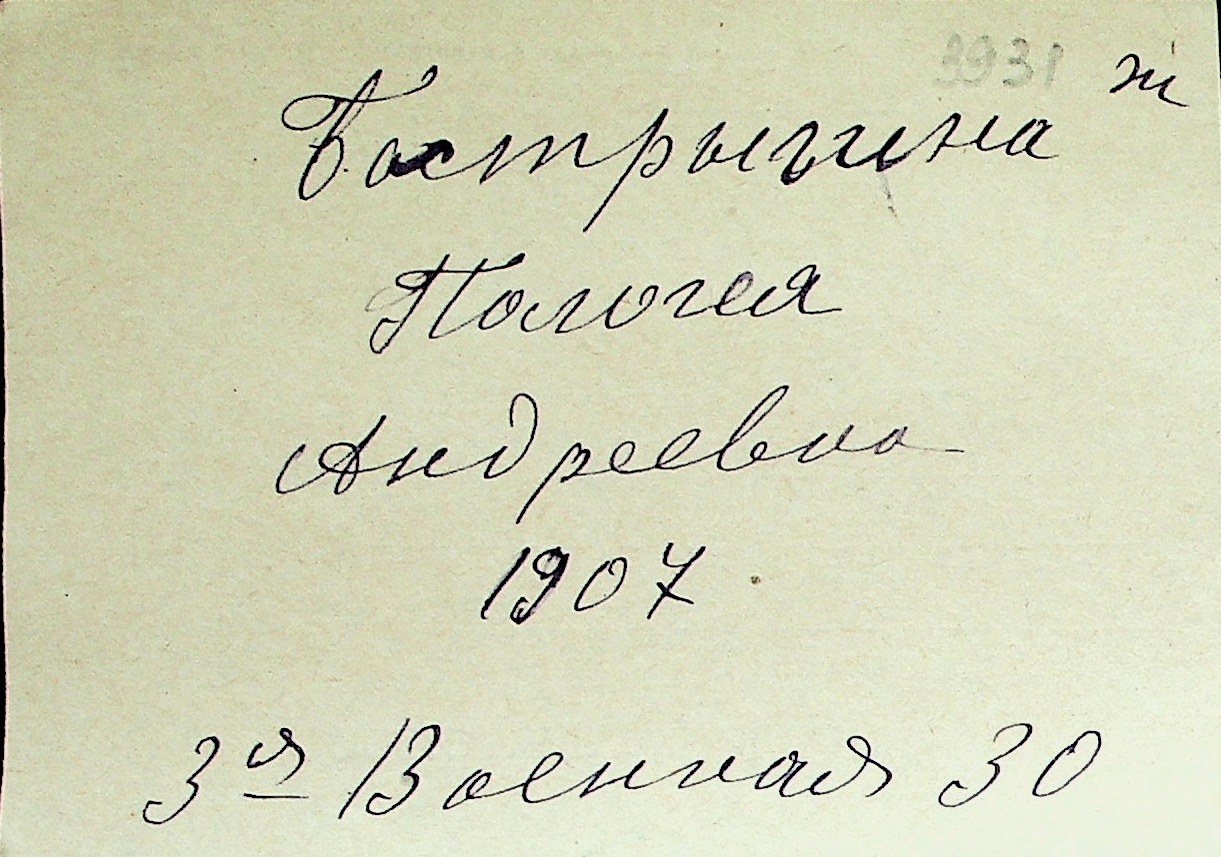 3931 ж
Бастрыгина
Пологея
Андреевна
1907
3ия Военная 30